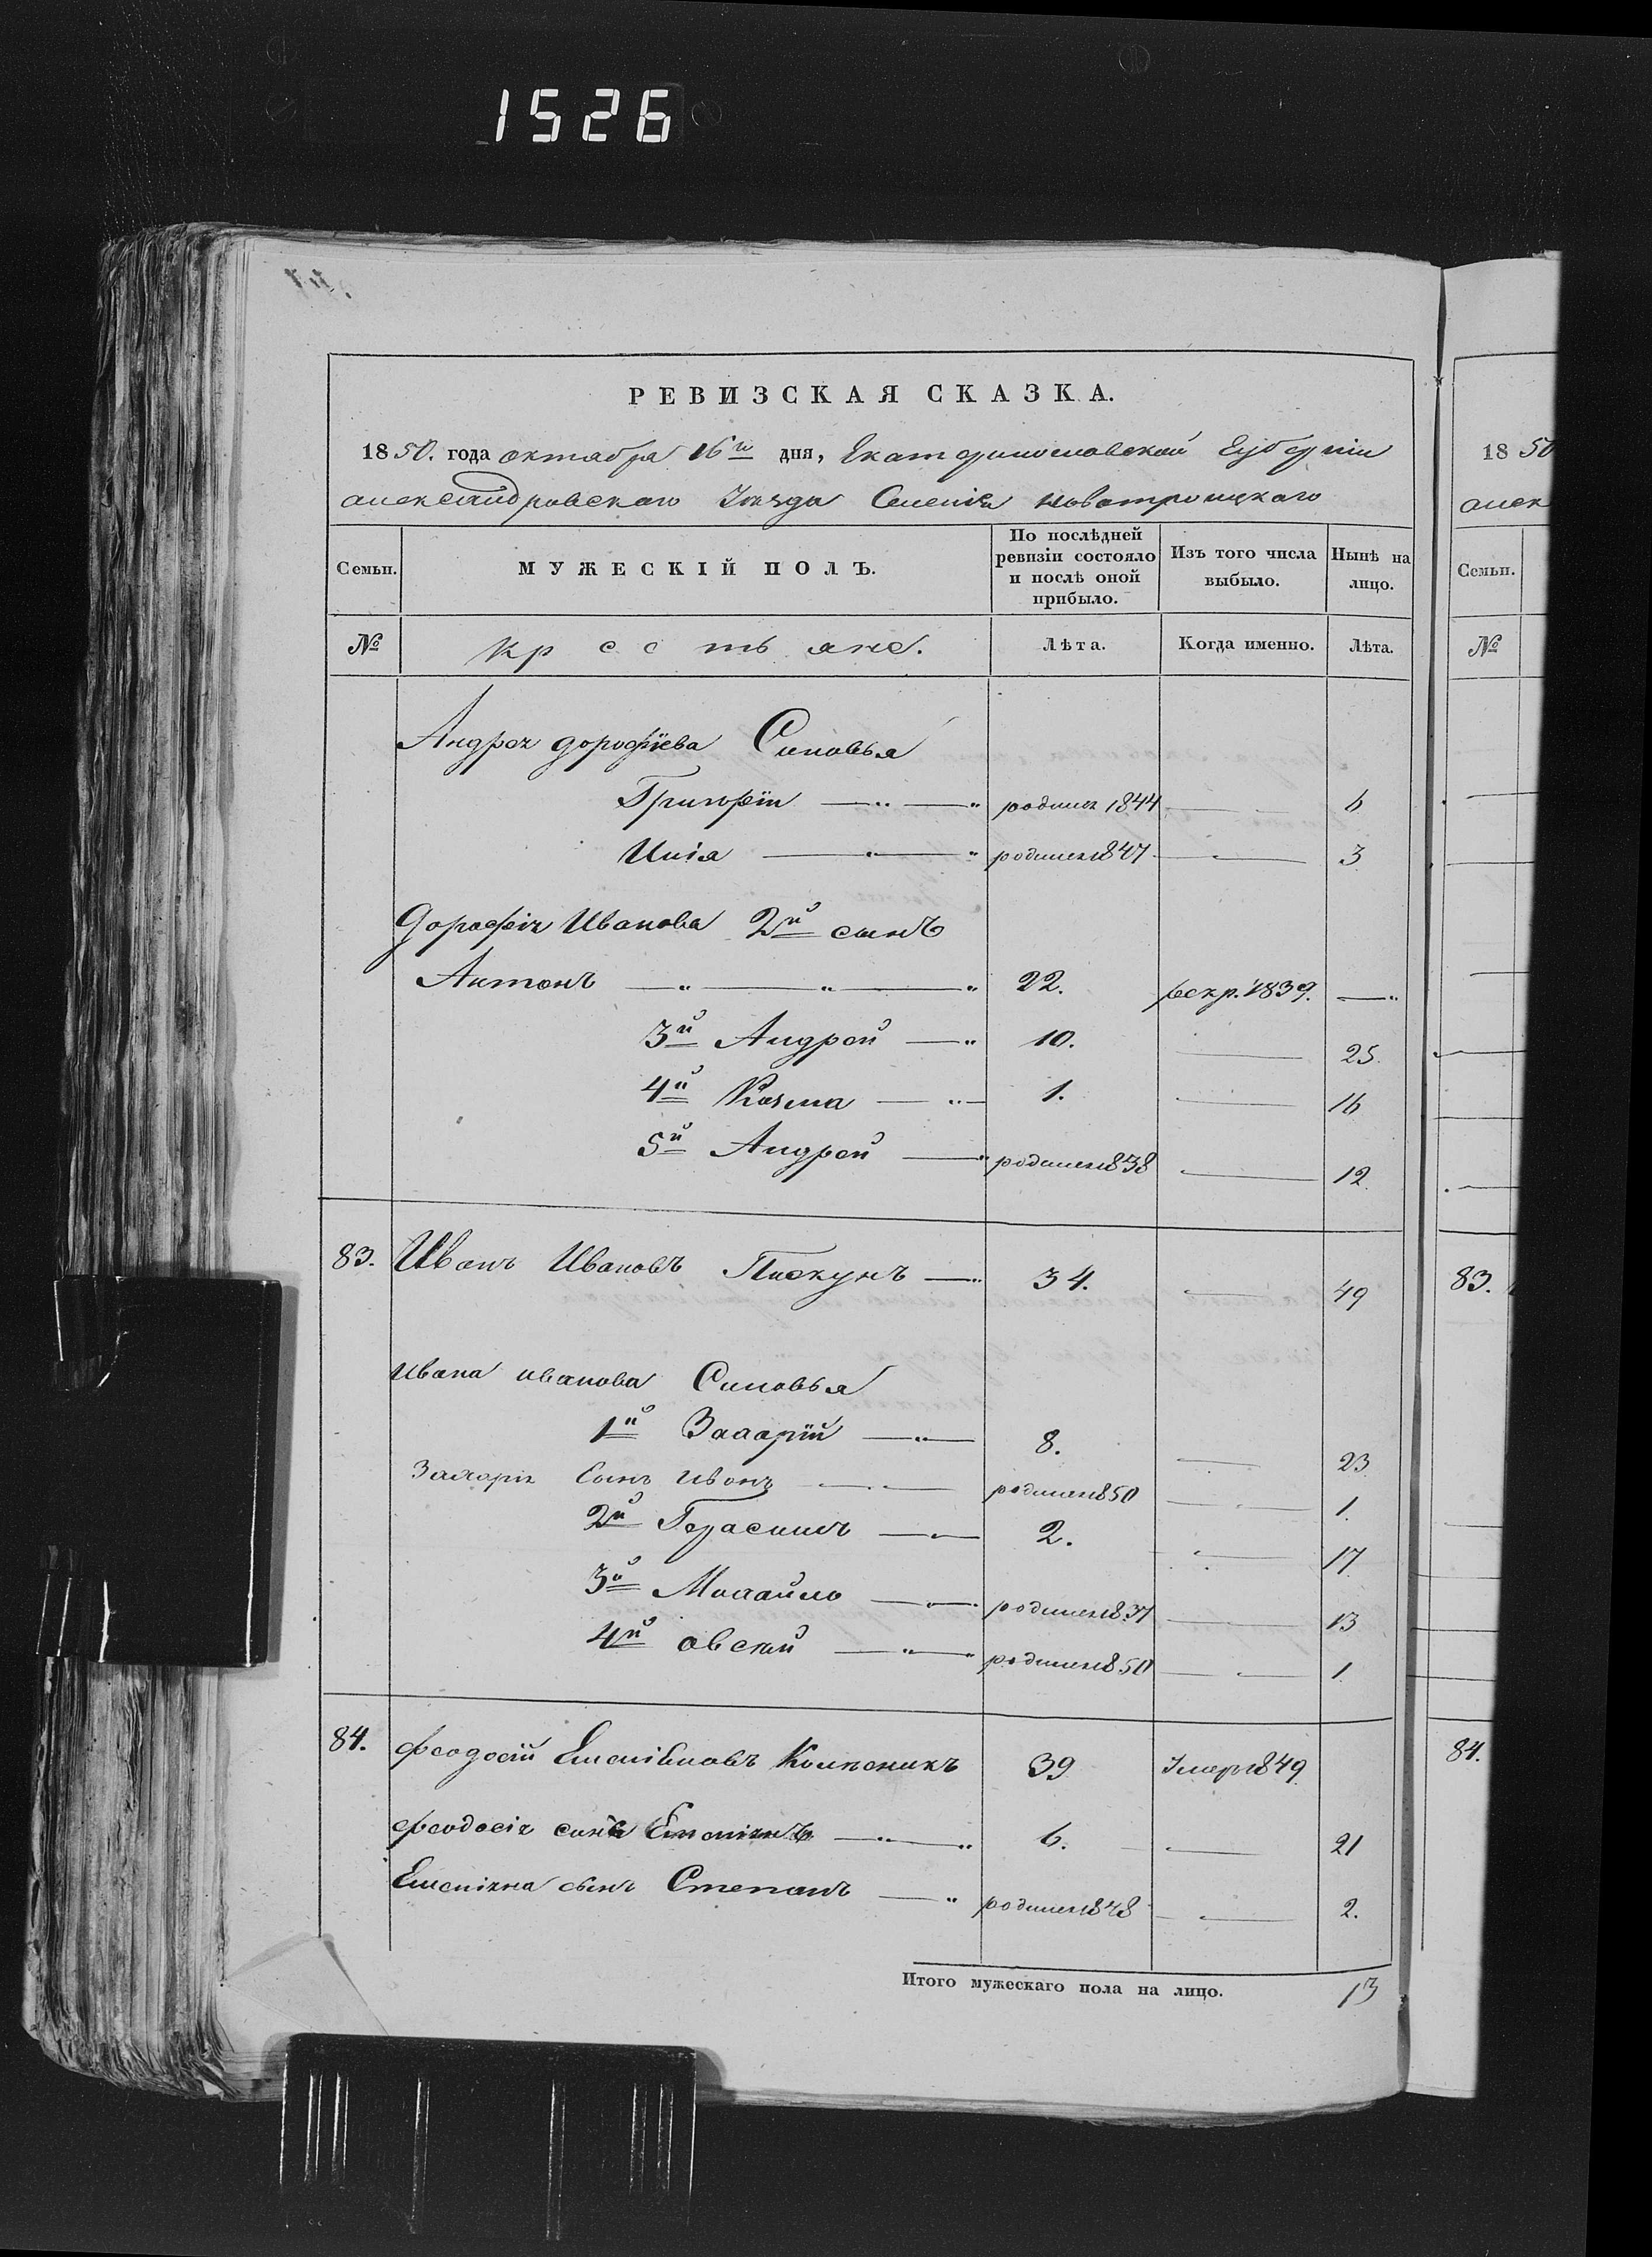 1526
РЕВИЗСКАЯ СКАЗКА.
1850. года октября 16го дня, Екатеринославской Губерніи
александровскаго Уезда Селенія новотроицкаго
Семьи. МУЖЕСКІЙ ПОЛЪ. По послѣдней ревизіи состояло и послѣ оной прибыло. Изъ того числа выбыло. Нынѣ на лицо.
№ Лѣта. Когда именно. Лѣта.
Андрея дорофіева Синовья
Григорій родился 1844 6
Илія родился 1847 3
Дорофія Иванова 2й сынъ
Антонъ 22. рекр. 1839.
3й Андрей 10. 25
4й Козма 1. 16
5й Андрей родился 1838 12
83. Иванъ Ивановъ Пискунъ 34. 49
Ивана иванова Синовья
1й Захарій 8. 23
Захарія Сынъ Иванъ родился 1850 1.
2й Герасимъ 2. 17
3й Михаилъ родился 1837 13
4й родился 1850 1
84. Феодосій Емеліановъ 39 Умеръ 1849
Феодосія синъ Емеліянъ 6. 21
Емеліяна сынъ Степанъ родился 1848 2.
Итого мужескаго пола на лицо. 13
18 50
алек
Семьи.
№
83.
84.